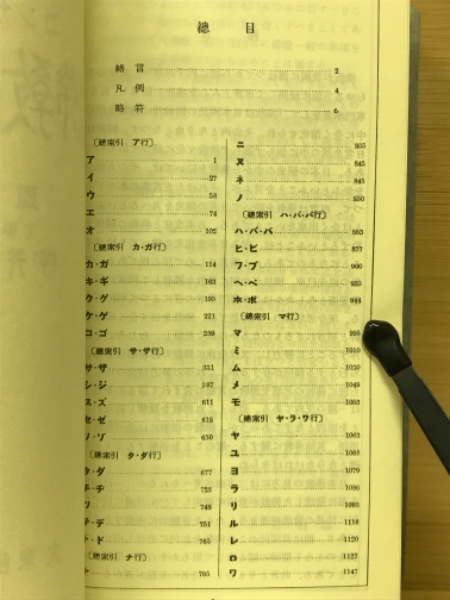 總目
緒言 2
凡例 4
略符 6
〔總索引 ア行〕
ア 1
イ 27
ウ 58
エ 74
オ 102
〔總索引 カ・ガ行〕
カ・ガ 114
キ・ギ 163
ク・グ 195
ケ・ゲ 221
コ・ゴ 259
〔總索引 サ・ザ行〕
サ・ザ 321
シ・ジ
ス・ズ 611
セ・ゼ 618
ソ・ゾ 650
〔總索引 タ・ダ行〕
タ・ダ 677
チ・ヂ 723
ツ 748
テ・デ 751
ト・ド 765
〔總索引 ナ行〕
795
ニ 805
ヌ 845
ネ 845
ノ 850
〔總索引 ハ・バ・パ行〕
ハ・バ・パ 853
ヒ・ビ 877
フ・ブ 900
ヘ・ベ 935
ホ・ボ 944
〔總索引 マ行〕
マ
ミ 1010
ム 1030
メ 1049
モ 1053
〔總索引 ヤ・ラ・ワ行〕
ヤ 1063
ユ 1068
ヨ 1079
ラ 1086
リ 1093
ル 1118
レ 1120
ロ 1127
ワ 1147